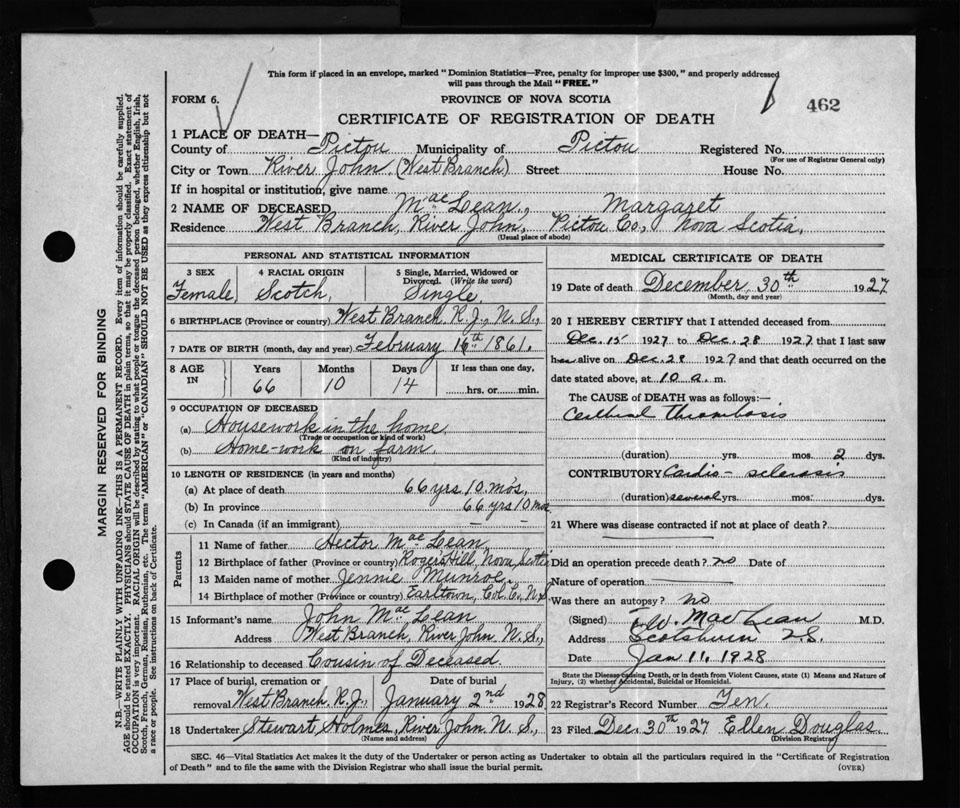 This form if placed in an envelope, marked "Dominion Statistics—Free, penalty for improper use $300," and properly addressed
will pass through the Mail "FREE."
FORM 6.
PROVINCE OF NOVA SCOTIA
462
CERTIFICATE OF REGISTRATION OF DEATH
1 PLACE OF DEATH—
County of Pictou Municipality of Pictou Registered No.
(For use of Registrar General only)
City or Town River John (West Branch) Street House No.
If in hospital or institution, give name
2 NAME OF DECEASED MacLean, Margaret
Residence West Branch, River John, Pictou Co., Nova Scotia,
(Usual place of abode)
PERSONAL AND STATISTICAL INFORMATION
3 SEX 4 RACIAL ORIGIN 5 Single, Married, Widowed or
Divorced. (Write the word)
Female Scotch Single
6 BIRTHPLACE (Province or country) West Branch R.J., N.S.,
7 DATE OF BIRTH (month, day and year) February 16th 1861.
8 AGE IN Years Months Days If less than one day,
66 10 14 hrs. or min.
9 OCCUPATION OF DECEASED
(a) Housework in the home
(Trade or occupation or kind of work)
(b) Home-work on farm.
(Kind of industry)
10 LENGTH OF RESIDENCE (in years and months)
(a) At place of death 66 yrs 10 mos.
(b) In province 66 yrs 10 mos
(c) In Canada (if an immigrant) — —
Parents
11 Name of father Hector MacLean
12 Birthplace of father (Province or country) Rogers Hill, Nova Scotia
13 Maiden name of mother Jennie Munroe.
14 Birthplace of mother (Province or country) Earltown, Col. Co., N.S.
15 Informant's name John MacLean
Address West Branch, River John N.S.,
16 Relationship to deceased Cousin of Deceased.
17 Place of burial, cremation or Date of burial
removal West Branch R.J., January 2nd 1928
18 Undertaker Stewart Holmes, River John N.S.,
(Name and address)
MEDICAL CERTIFICATE OF DEATH
19 Date of death December 30th 1927
(Month, day and year)
20 I HEREBY CERTIFY that I attended deceased from
Dec. 15 1927 to Dec. 28 1927 that I last saw
her alive on Dec. 28 1927 and that death occurred on the
date stated above, at 10 a. m.
The CAUSE of DEATH was as follows:—
Cerebral thrombosis
(duration) yrs. mos. 2 dys.
CONTRIBUTORY Cardio-sclerosis
(duration) several yrs. mos. dys.
21 Where was disease contracted if not at place of death?
Did an operation precede death? no Date of
Nature of operation
Was there an autopsy? no
(Signed) MacLean M.D.
Address Scotsburn N.S.
Date Jan 11, 1928
State the Disease causing Death, or in death from Violent Causes, state (1) Means and Nature of
Injury, (2) whether Accidental, Suicidal or Homicidal.
22 Registrar's Record Number Ten.
23 Filed Dec. 30th 1927 Ellen Douglas.
(Division Registrar)
SEC. 46—Vital Statistics Act makes it the duty of the Undertaker or person acting as Undertaker to obtain all the particulars required in the "Certificate of Registration
of Death" and to file the same with the Division Registrar who shall issue the burial permit. (OVER)
MARGIN RESERVED FOR BINDING
N.B.—WRITE PLAINLY WITH UNFADING INK—THIS IS A PERMANENT RECORD. Every item of information should be carefully supplied.
AGE should be stated EXACTLY. PHYSICIANS should STATE CAUSE OF DEATH in plain terms, so that it may be properly classified. Exact statement of
OCCUPATION is very important. RACIAL ORIGIN will be described by stating to what people or tongue the deceased person belonged, whether English, Irish,
Scotch, French, German, Russian, Ruthenian, etc. The terms "AMERICAN" or "CANADIAN" SHOULD NOT BE USED as they express citizenship but not
a race or people. See instructions on back of Certificate.